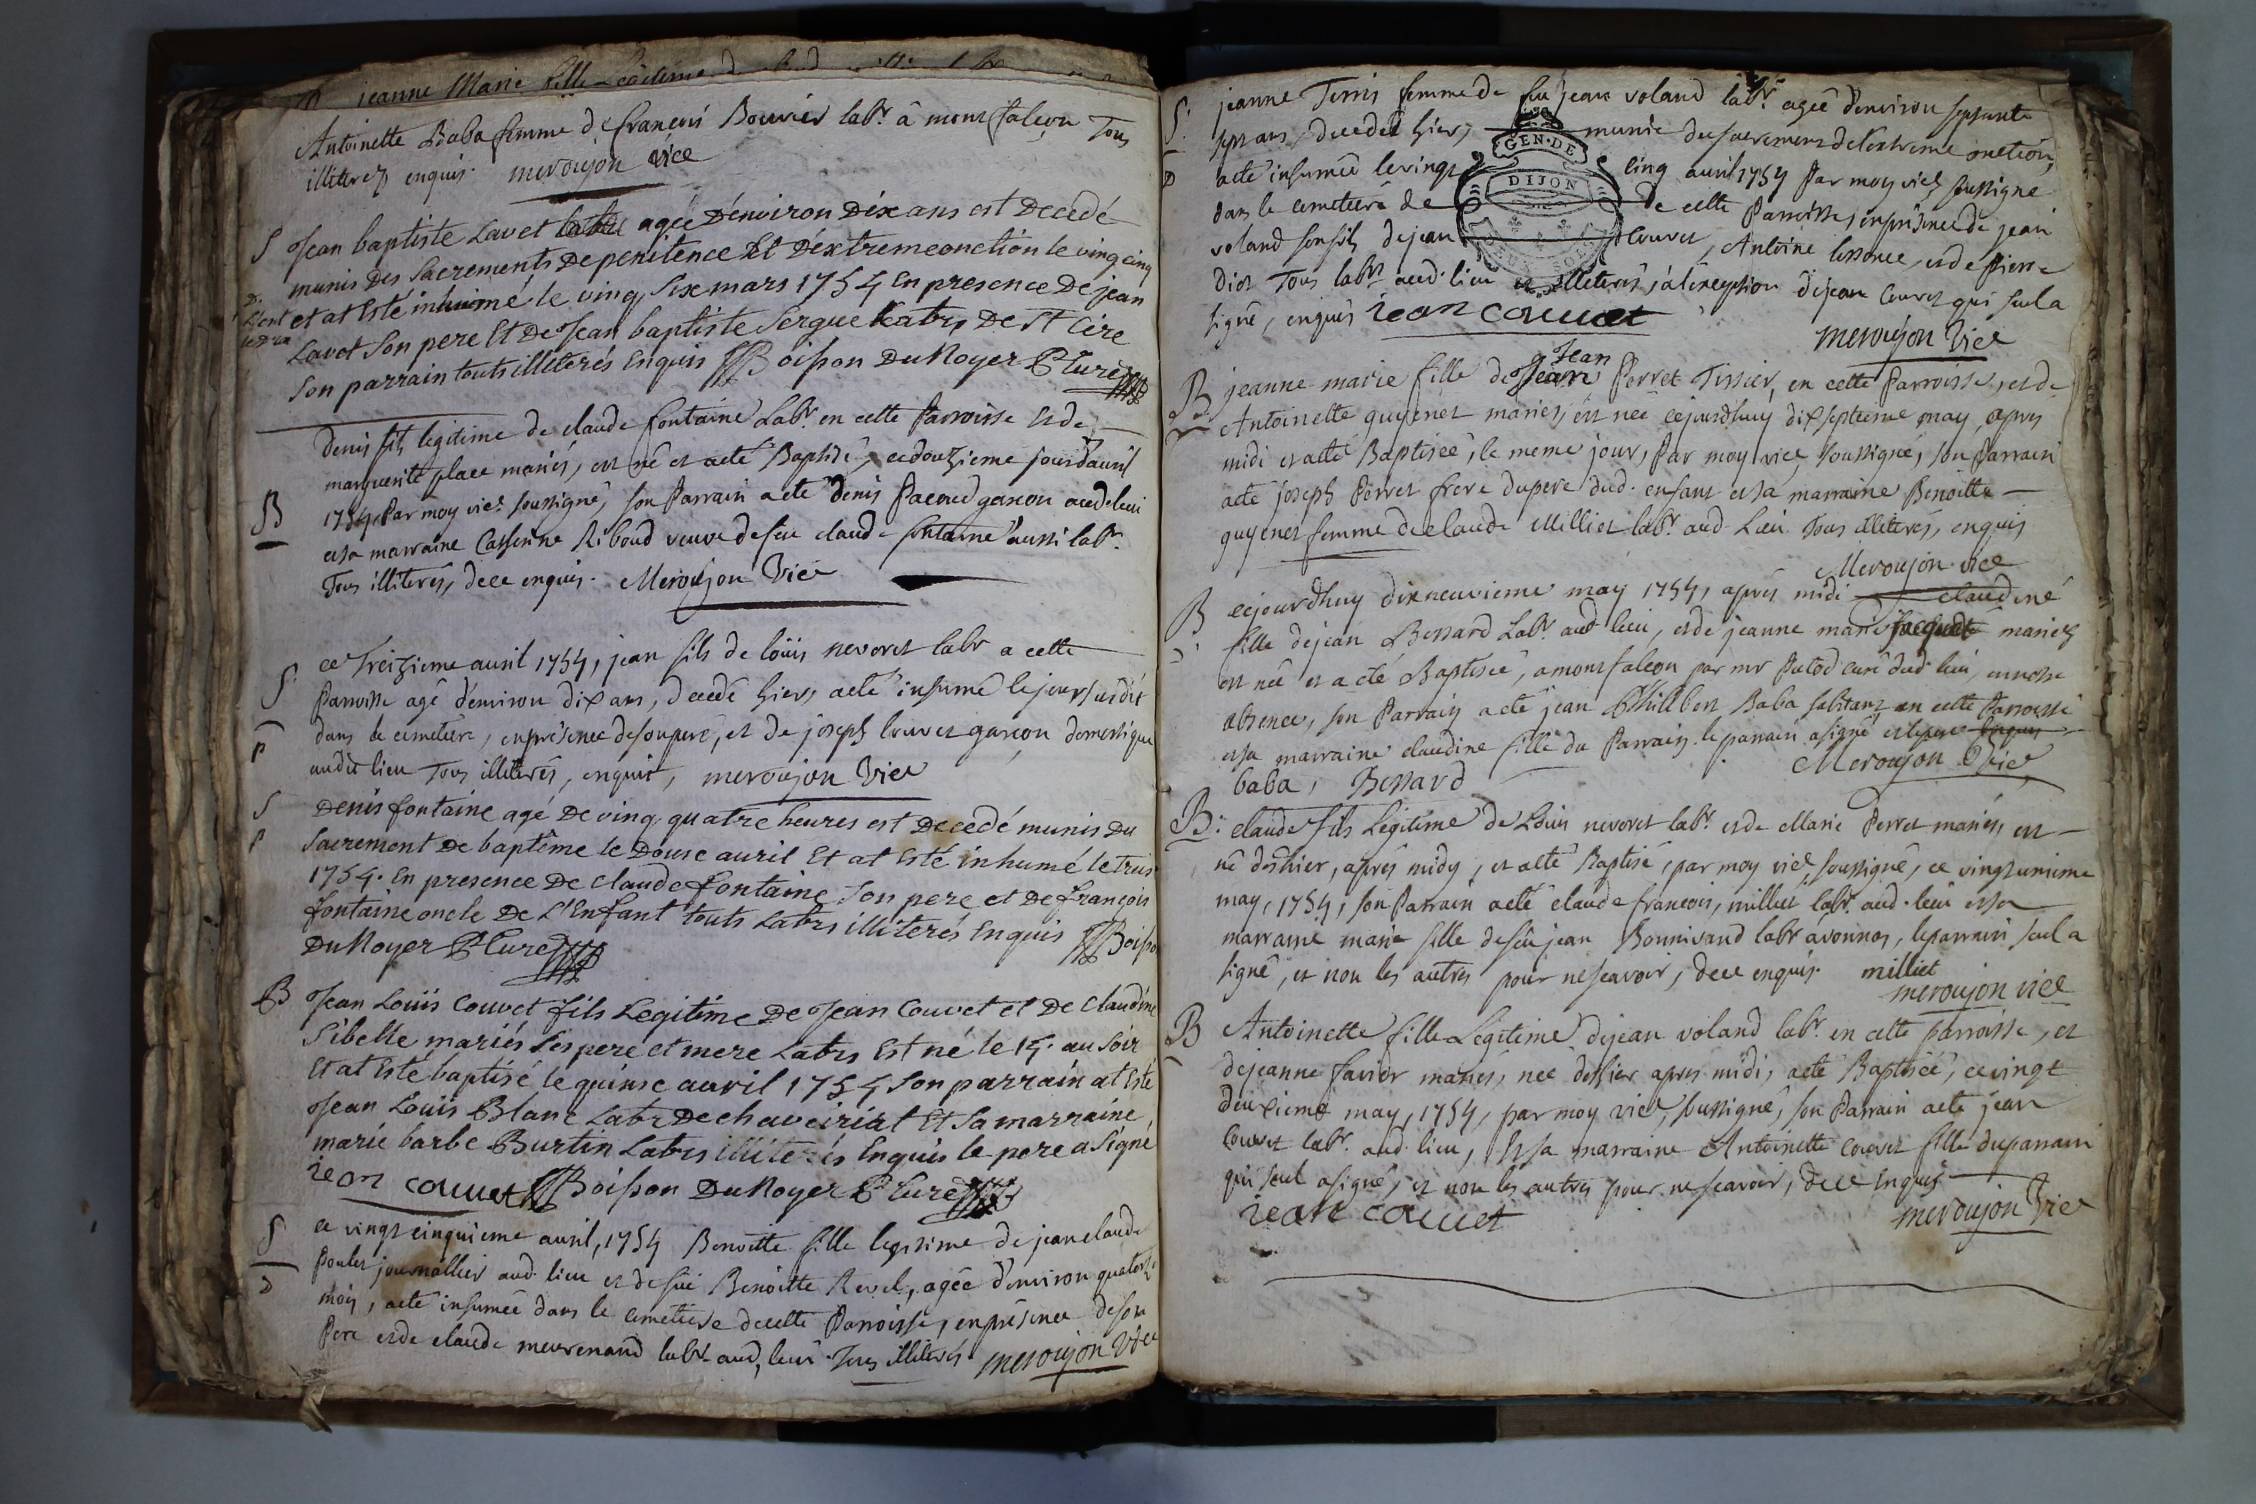 jeanne Marie fille Légitime
Antoinette Baba femme de françois Bouvier labr. à montfalcon Tous
illiterez enquis. meroujon vice
S Jean baptiste Lavet agée D'environ Dix ans est Decedé
munis Des Sacrements De penitence Et D'extremeonction le ving cinq
et at Esté inhumé le ving Six mars 1754 En presence De jean
Lavet Son pere Et De Jean baptiste Sergue Labrs De St Cire
Son parrain touts illiterés Enquis Boisson Du Noyer P Curé
Denis fils legitime de claude fontaine Labr. en cette Parroisse et de
marguerite place mariés, est né et aeté Baptisé, ce douzieme jour d'avril
B 1754, Par moy vice soussigné, son Parrain aeté Denis Pacoud garcon aud. lieu
et sa marraine Riboud veuve de feu claude fontaine aussi labr.
Tous illiterés, de ce enquis. Meroujon Vice
S ce Treizieme avril 1754, jean fils de loüis nevoret labr a cette
Parroisse agé d'environ dix ans, decedé hier, aeté inhumé le jour susdit
P dans le cemetiere, en présence de son pere, et de joseph Couvet garçon domestique
audit lieu Tous illiterés, enquis, meroujon Vice
S Denis fontaine agé De ving quatre heures est Decedé munis Du
P Sacrement De baptême le Douse avril Et at Esté inhumé le trese
1754. En presence De Claude fontaine Son pere et De François
fontaine oncle De L'Enfant touts Labrs illiterés Enquis Boisson
Du Noyer P Curé
B Jean Loüis Couvet fils Legitime De Jean Couvet et De Claudine
Sibelle mariés Ses pere et mere Labrs Est né le 14. au Soir
Et at Esté baptisé le quinse avril 1754 Son parrain at Esté
Jean Loüis Blanc Labr De chaveiriat Et Sa marraine
marie barbe Burtin Labrs illiterés Enquis le pere a Signé
iean couuet Boisson Du Noyer P Curé
S ce vingt cinquieme avril, 1754 Benoitte fille legitime de jean claude
Poulet journallier aud. lieu et de füe Benoitte Revel, agée d'environ quatorze
D mois, aeté inhumée dans le cemetiere de cette Parroisse, en présence de son
Pere et de claude meurenand labr. aud. lieu. Tous illiterés. meroujon Vice
S. jeanne Terris femme de feu jean voland labr. agée d'environ septante
sept ans, decedée hier, munie des sacremens de l'extreme onction,
D aeté inhumée le vingt cinq avril 1754 Par moy vice soussigné
dans le cemetiere de de cette Parroisse, en présence de jean
voland son fils de jean Couvet, Antoine et de Pierre
Diot Tous labrs. aud. lieu et illiterés, à l'exception de jean Couvet qui seul a
signé, enquis iean couuet
meroujon Vice
GEN. DE
DIJON
Jean
B jeanne marie fille de Jean Perret Tissier, en cette Parroisse, et de
Antoinette guyenet mariés, est née cejourdhuy dix septieme may, apres
midi et aeté Baptisée, le meme jour, Par moy vice soussigné, son Parrain
aeté joseph Perret frere du pere dud. enfant et sa marraine Benoitte
guyenet femme de claude Milliet labr. aud. Lieu Tous illiterés, enquis
Meroujon vice
B cejourdhuy dixneuvieme may 1754, aprés midi claudine
fille de jean Bessard Labr. aud. lieu, et de jeanne marie Jacquet mariez
est née et a eté Baptisée, a montfalcon par mr Putod curé dud. lieu, en notre
absence, son Parrain aeté jean Philibert Baba habitant en cette Parroisse
et sa marraine claudine fille du Parrain. le parrain a signé et le pere
baba, Bessard Meroujon Vice
B. claude fils Légitime de Loüis nevoret labr. et de Marie Perret mariés, est
né des hier, aprés midy, et aeté Baptisé, par moy vice, soussigné, ce vingtunieme
may, 1754, son Parrain aeté claude francois, milliet labr. aud. lieu et sa
marraine marie fille de feu jean Bonnivand labr a vonnas, le parrain seul a
signé, et non les autres pour ne scavoir, de ce enquis. milliet
meroujon vice
B Antoinette fille Légitime de jean voland labr. en cette parroisse, et
de jeanne favier mariés, née des hier apres midi, aeté Baptisée, ce vingt
deuxieme may, 1754, par moy vice, soussigné, son Parrain aeté jean
Couvet labr. aud. lieu, Et sa marraine Antoinette Couvet fille du parrain
qui seul a signé, et non les autres pour ne scavoir, de ce Enquis
iean couuet meroujon Vice